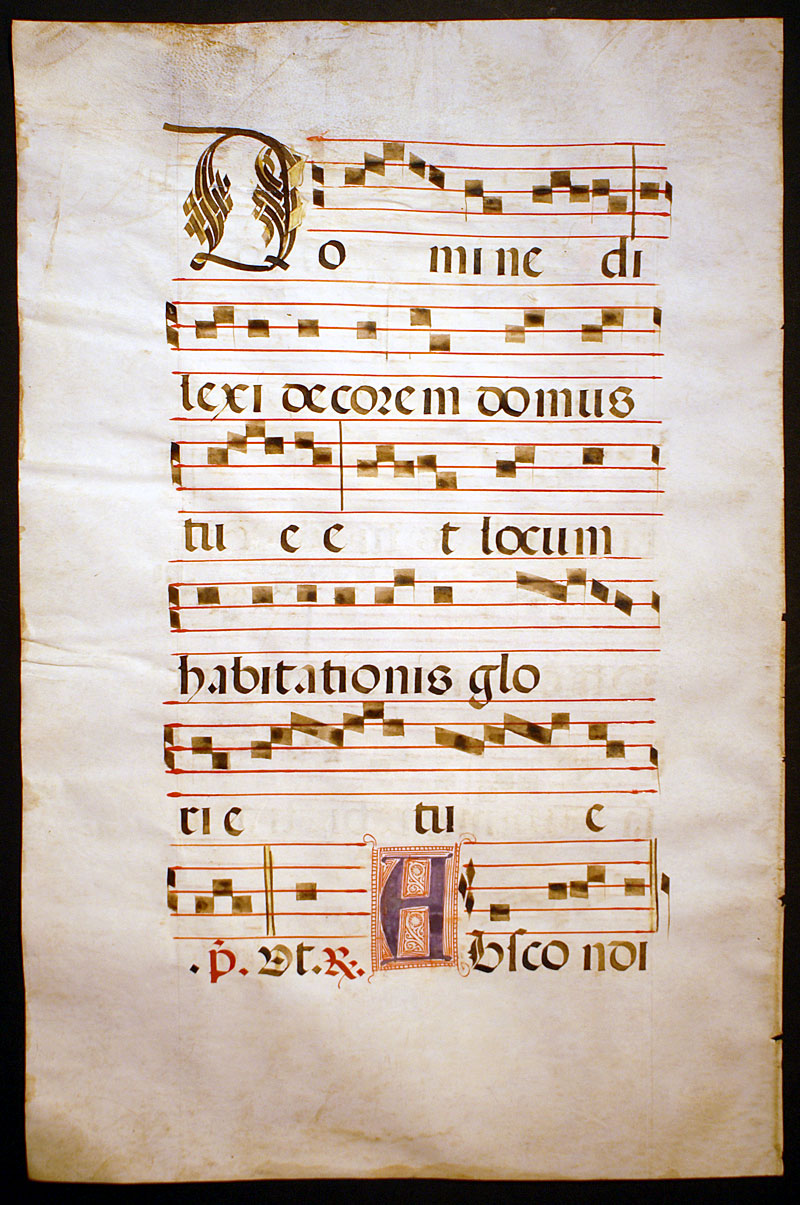 Do mi ne di
lexi decorem domus
tu e e t locum
habitationis glo
ri e tu e
.p̃. Ut. R. Absco ndi